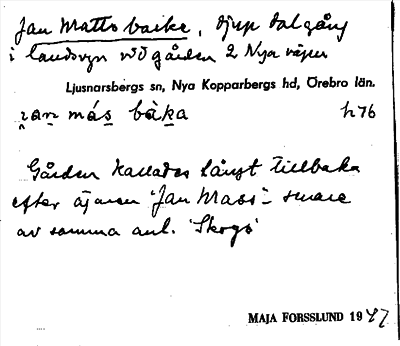 Jan Matts backe, djup dalgång
i landsvgn vid gården 2 Nya
Ljusnarsbergs sn, Nya Kopparbergs hd, Örebro län.
ɪan más bàka h 76
Gården kallades långt tillbaka
efter ägaren "Jan Mass" - senare
av samma anl. 'Skogs'
MAJA FORSSLUND 1947